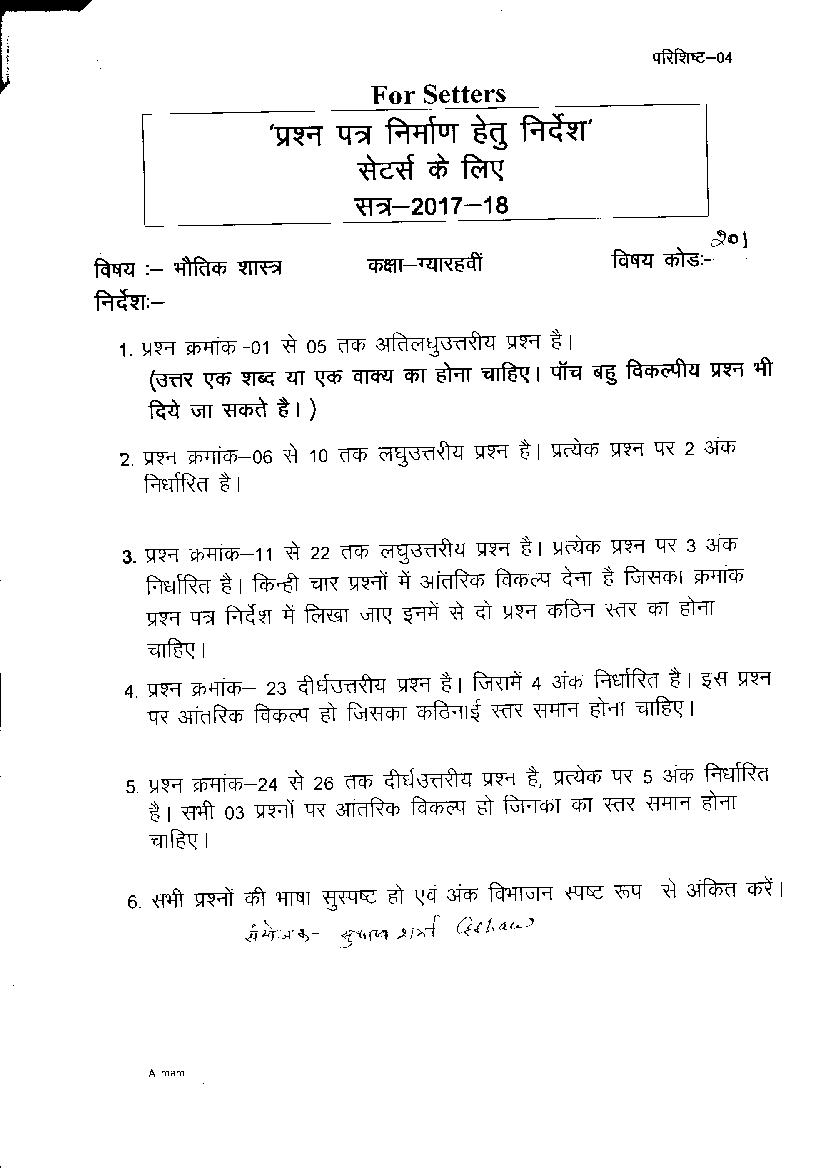 परिशिष्ट–04
For Setters
'प्रश्न पत्र निर्माण हेतु निर्देश'
सेटर्स के लिए
सत्र–2017–18
विषय :– भौतिक शास्त्र कक्षा–ग्यारहवीं विषय कोडः- 201
निर्देशः–
1. प्रश्न क्रमांक -01 से 05 तक अतिलघुउत्तरीय प्रश्न है।
(उत्तर एक शब्द या एक वाक्य का होना चाहिए। पॉच बहु विकल्पीय प्रश्न भी
दिये जा सकते है। )
2. प्रश्न क्रमांक–06 से 10 तक लघुउत्तरीय प्रश्न है। प्रत्येक प्रश्न पर 2 अंक
निर्धारित है।
3. प्रश्न क्रमांक–11 से 22 तक लघुउत्तरीय प्रश्न है। प्रत्येक प्रश्न पर 3 अंक
निर्धारित है। किन्ही चार प्रश्नों में आंतरिक विकल्प देना है जिसका क्रमांक
प्रश्न पत्र निर्देश में लिखा जाए इनमें से दो प्रश्न कठिन स्तर का होना
चाहिए।
4. प्रश्न क्रमांक– 23 दीर्घउत्तरीय प्रश्न है। जिसमें 4 अंक निर्धारित है। इस प्रश्न
पर आंतरिक विकल्प हो जिसका कठिनाई स्तर समान होना चाहिए।
5. प्रश्न क्रमांक–24 से 26 तक दीर्घउत्तरीय प्रश्न है, प्रत्येक पर 5 अंक निर्धारित
है। सभी 03 प्रश्नों पर आंतरिक विकल्प हो जिनका का स्तर समान होना
चाहिए।
6. सभी प्रश्नों की भाषा सुस्पष्ट हो एवं अंक विभाजन स्पष्ट रूप से अंकित करें।
संयोजक–